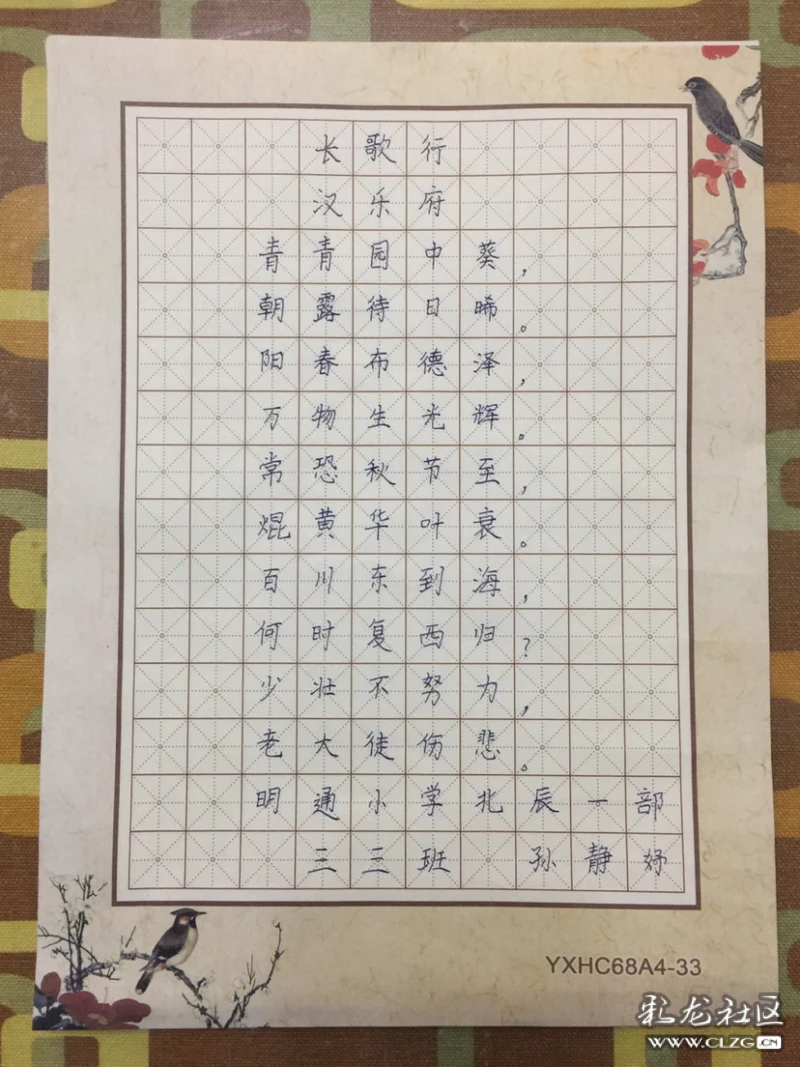 长歌行
汉乐府
青青园中葵，
朝露待日晞。
阳春布德泽，
万物生光辉。
常恐秋节至，
焜黄华叶衰。
百川东到海，
何时复西归？
少壮不努力，
老大徒伤悲。
明通小学北辰一部
三三班 孙静妤
YXHC68A4-33
彩龙社区
WWW.CLZG.CN